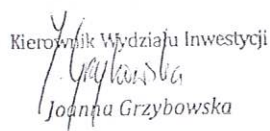 Kierownik Wydziału Inwestycji
Joanna Grzybowska